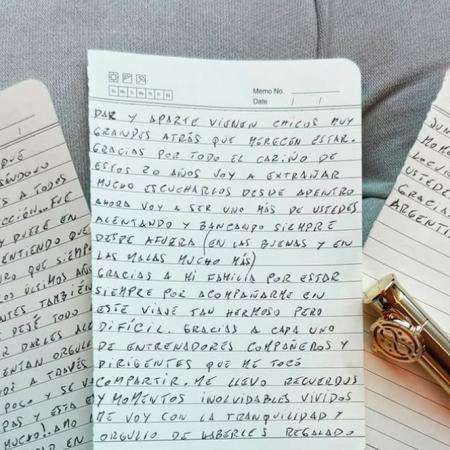 Memo No.
Date / /
DAR Y APARTE VIENEN CHICOS MUY
GRANDES ATRÁS QUE MERECEN ESTAR.
GRACIAS POR TODO EL CARIÑO DE
ESTOS 20 AÑOS VOY A EXTRAÑAR
MUCHO ESCUCHARLOS DESDE ADENTRO
AHORA VOY A SER UNO MAS DE USTEDES
ALENTANDO Y BANCANDO SIEMPRE
DESDE AFUERA (EN LAS BUENAS Y EN
LAS MALAS MUCHO MÁS)
GRACIAS A MI FAMILIA POR ESTAR
SIEMPRE POR ACOMPAÑARME EN
ESTE VIAJE TAN HERMOSO PERO
DIFÍCIL. GRACIAS A CADA UNO
DE ENTRENADORES COMPAÑEROS Y
DIRIGENTES QUE ME TOCÓ
COMPARTIR. ME LLEVO RECUERDOS
Y MOMENTOS INOLVIDABLES VIVIDOS
ME VOY CON LA TRANQUILIDAD Y
ORGULLO DE HABERLES REGALADO
QUÉ
A TODOS
CCIÓN. FUE
Y DUELE EN
ENTIENDO QUE
RO QUE SIEMP
OS ÚLTIMOS AÑOS
NTES TAMBIÉN
DEJÉ TODO
R DARLES ALE
ENTAN ORGULL
A TRAVÉS
POCO Y SE V
PAS Y ESTA E
MUCHO!. AMO
JUN
MOMEN
LOCUR
USTEDE
GRACIA
ARGENTI